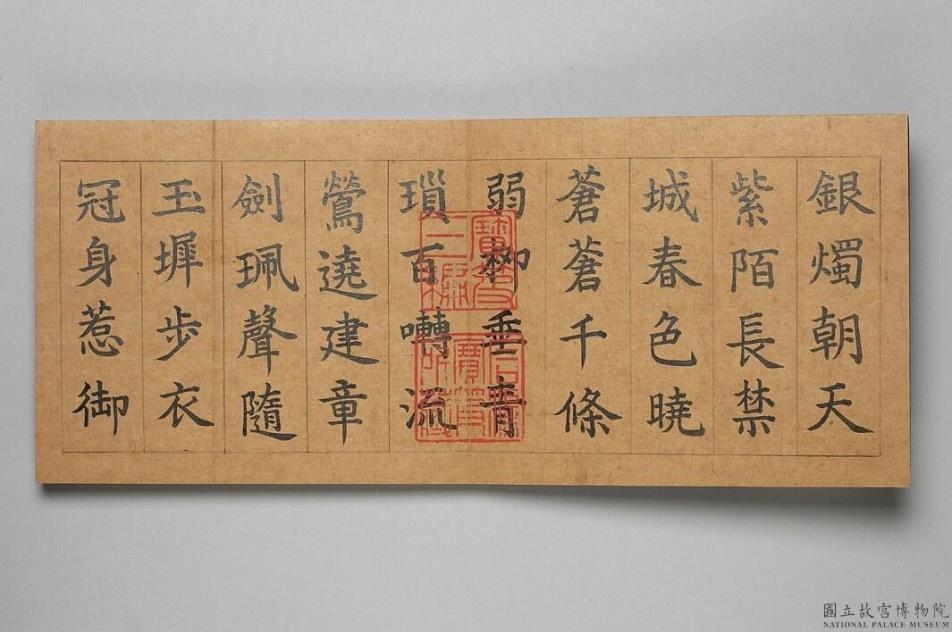 銀燭朝天
紫陌長禁
城春色曉
蒼蒼千條
弱柳垂青
瑣百囀流
鶯遶建章
劍珮聲隨
玉墀步衣
冠身惹御
寶笈三編
石渠寶笈所藏
國立故宮博物院
NATIONAL PALACE MUSEUM